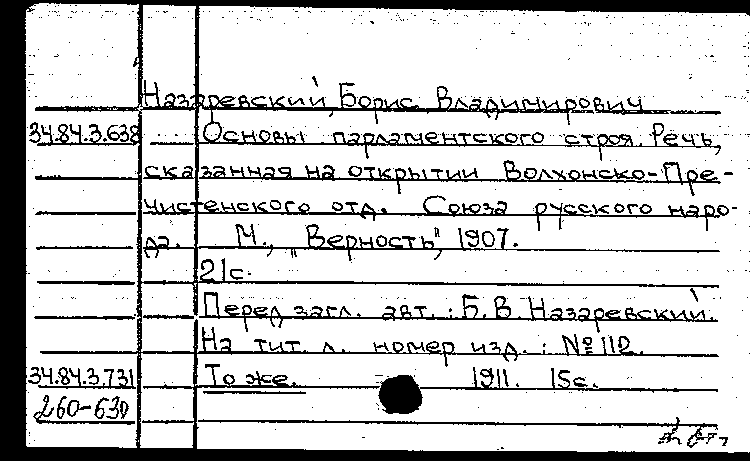 Назаревский, Борис Владимирович
34.84.3.638 Основы парламентского строя. Речь,
сказанная на открытии Волхонско-Пре-
чистенского отд. Союза русского наро-
да. М., "Верность", 1907.
21с.
Перед загл. авт.: Б.В. Назаревский.
На тит. л. номер изд.: №112.
34.84.3.731 То же. 1911. 15с.
260-630